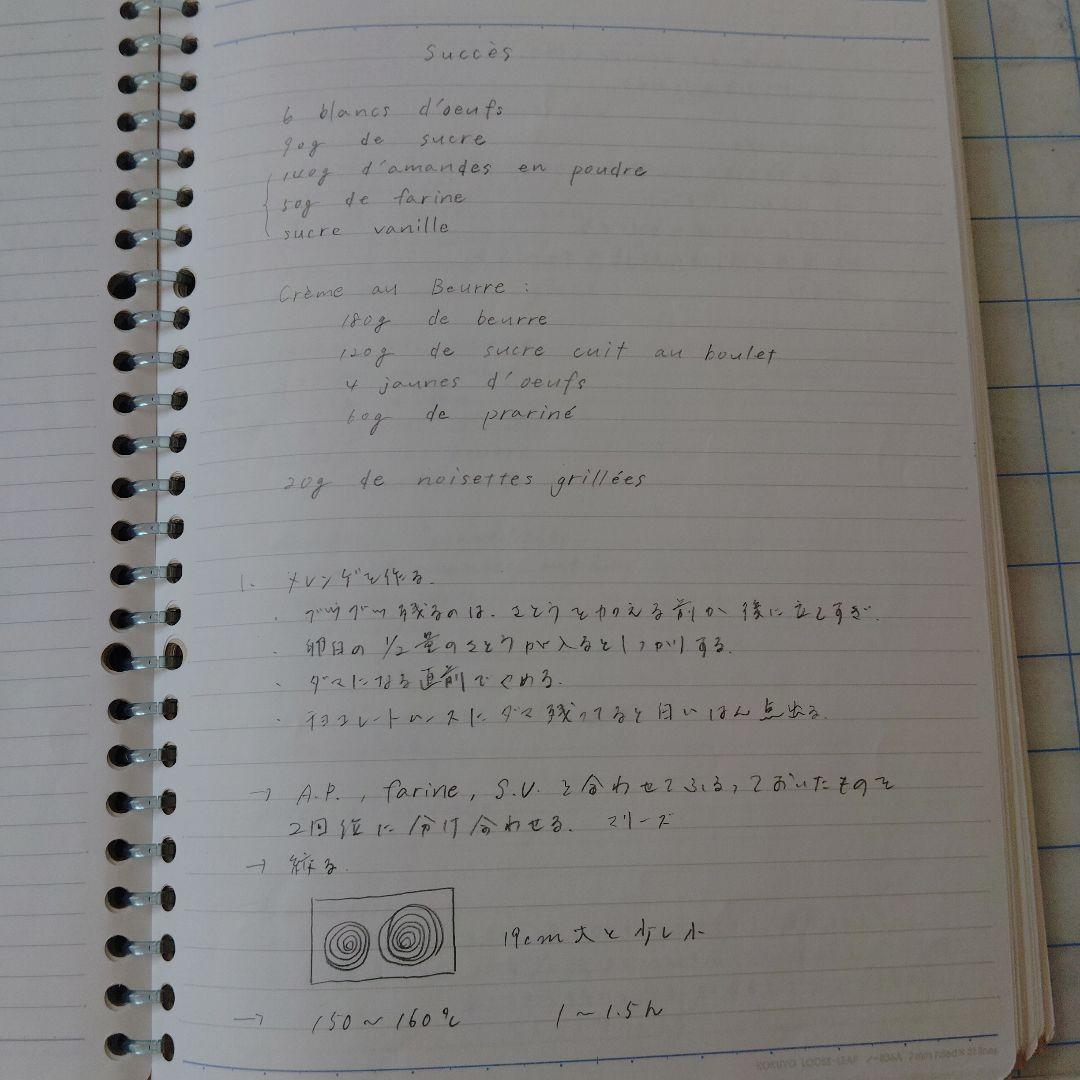 Succès
6 blancs d'oeufs
90g de sucre
140g d'amandes en poudre
50g de farine
sucre vanille
Crème au Beurre :
180g de beurre
120g de sucre cuit au boulet
4 jaunes d'oeufs
60g de prariné
20g de noisettes grillées
1. メレンゲを作る.
・ブツブツ残るのは、さとうを加える前か後に立てすぎ.
・卵白の1/2量のさとうが入るとしっかりする.
・ダマになる直前でやめる.
・チョコレートムースにダマ残ってると白いはん点出る.
→ A.P., farine, S.V. を合わせてふるっておいたものを
2回位に分け合わせる. マリーズ
→ 絞る.
19cm大と少し小
→ 150〜160℃ 1〜1.5h
KOKUYO LOOSE-LEAF ノ-836A 7mm ruled×31 lines